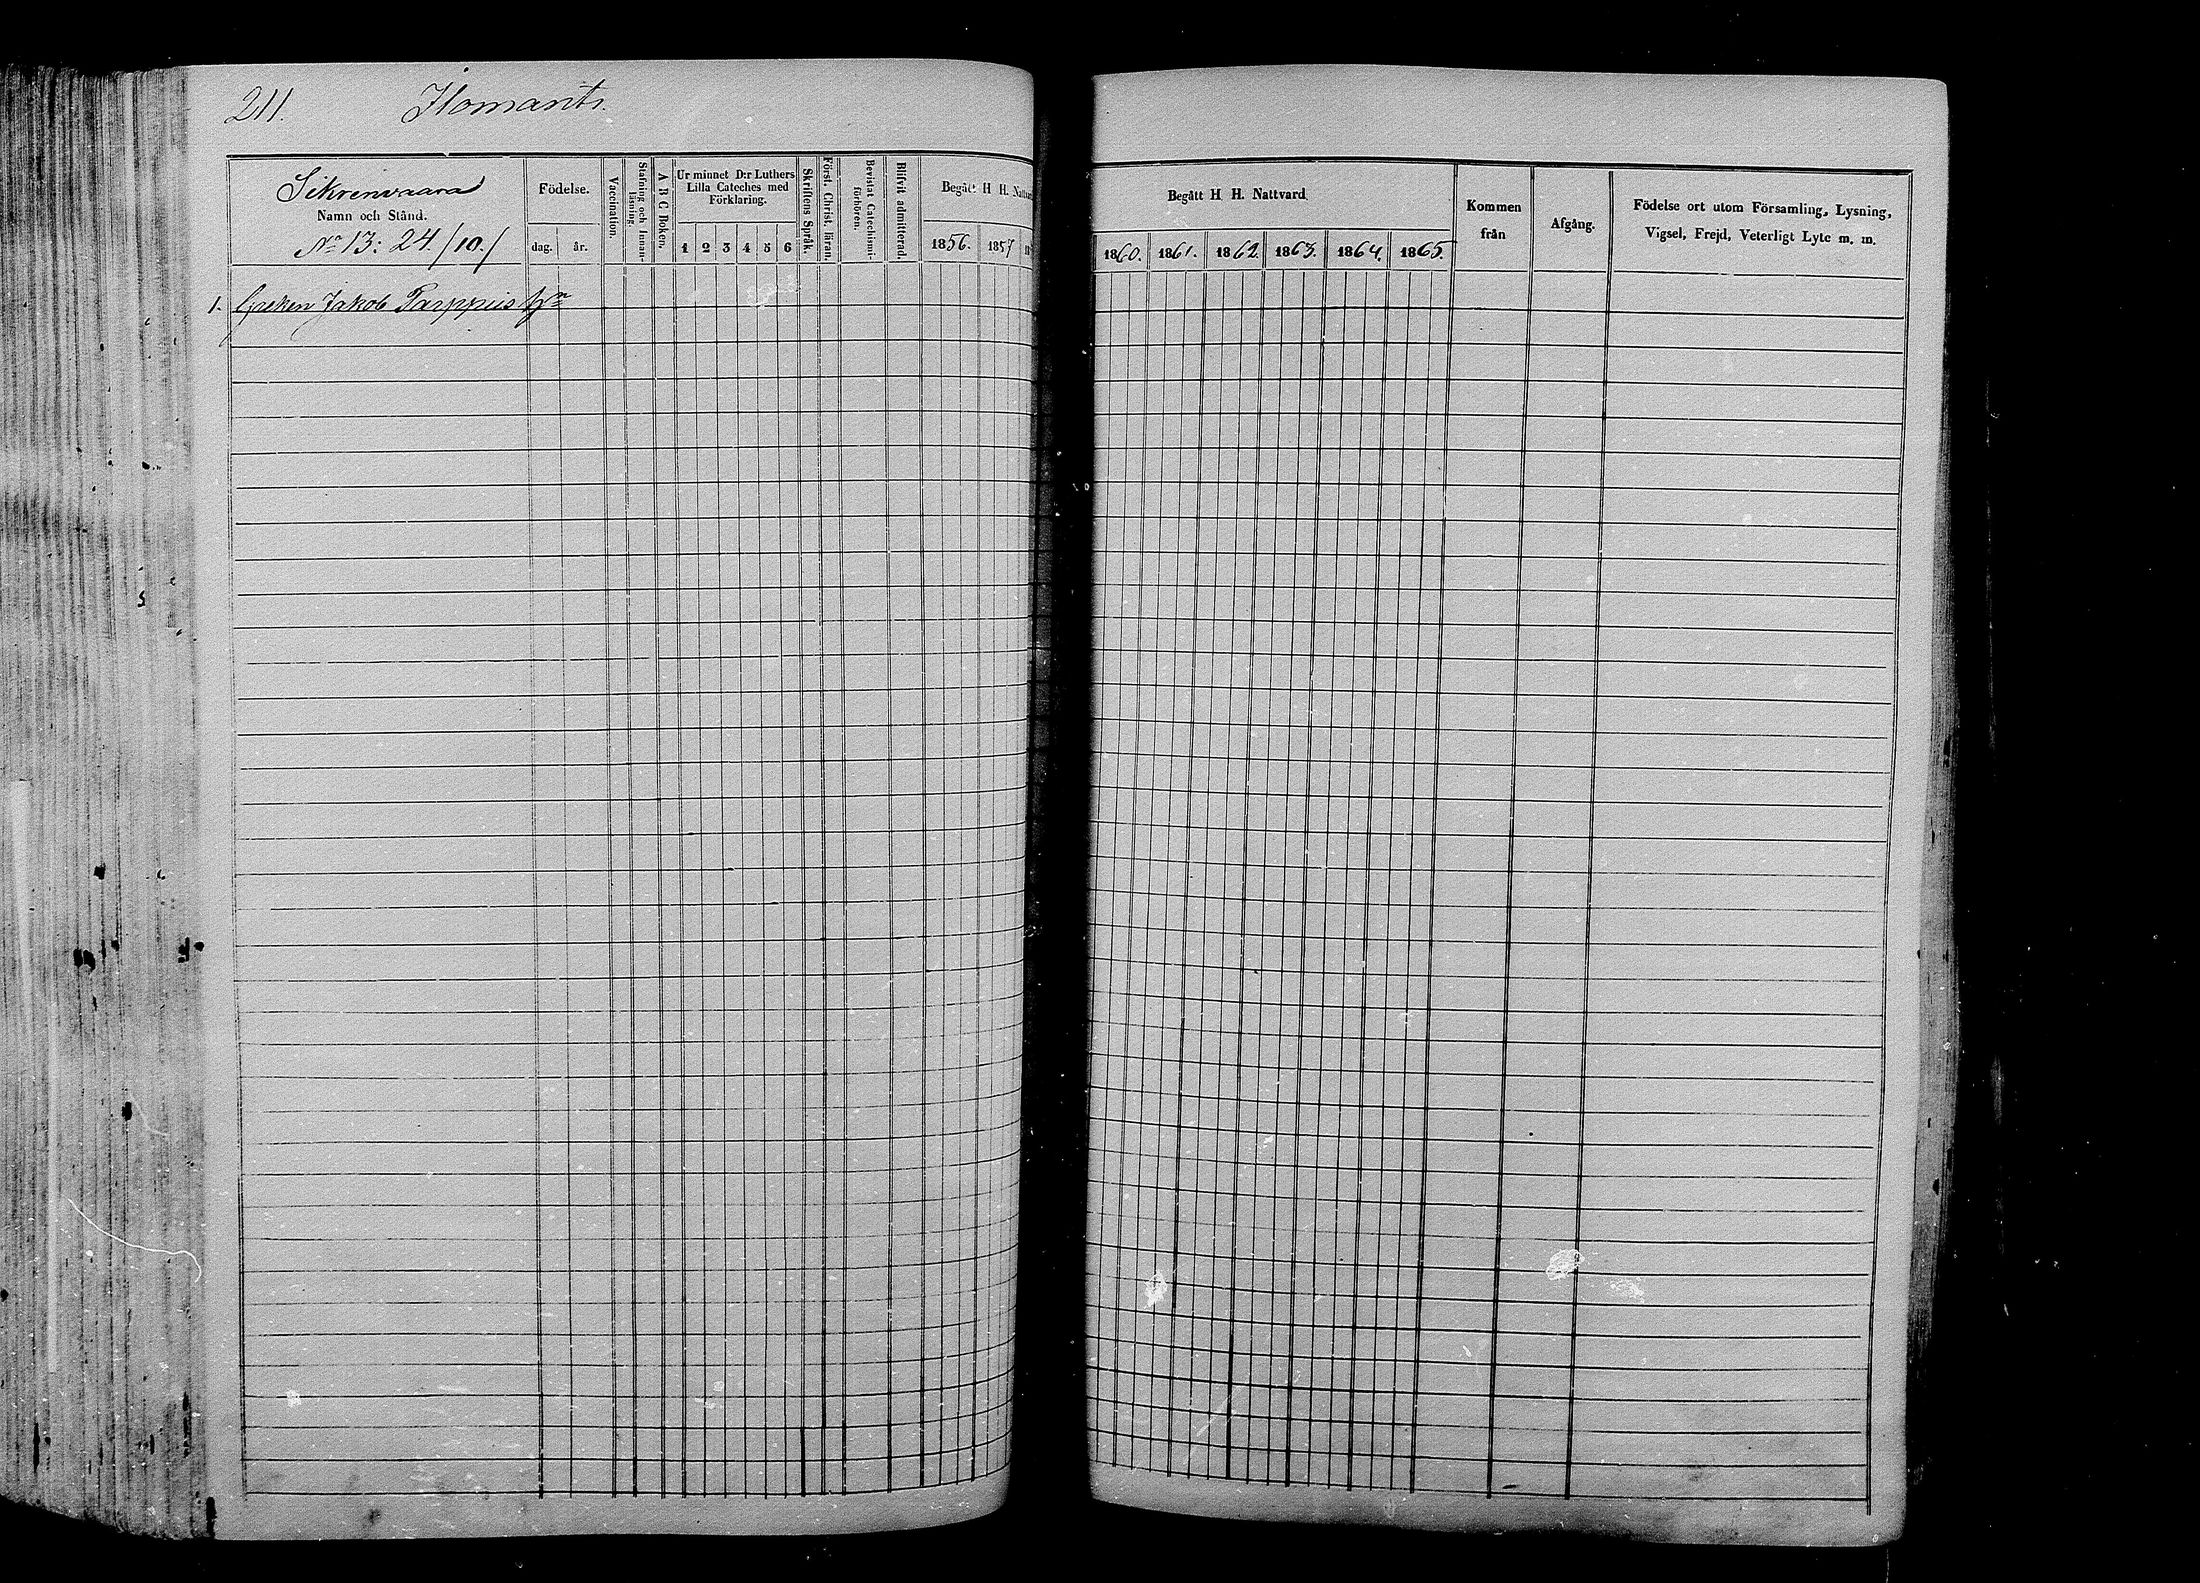 211. Ilomants.
Sikrenvaara
Namn och Stånd.
No 13: 24/10/
Födelse.
dag. år.
Vaccination.
Stafning och Innan-
läsning.
A B C Boken.
Ur minnet D:r Luthers
Lilla Cateches med
Förklaring.
1 2 3 4 5 6
Skriftens Språk.
Först. Christ. läran.
Bevistat Catechismi-
förhören.
Blifvit admitterad.
Begått H H. Nattvard
1856. 1857
1. Greken Jakob Parppeis
Begått H H. Nattvard.
1860. 1861. 1862. 1863. 1864. 1865.
Kommen
från
Afgång.
Födelse ort utom Församling, Lysning,
Vigsel, Frejd, Veterligt Lyte m. m.